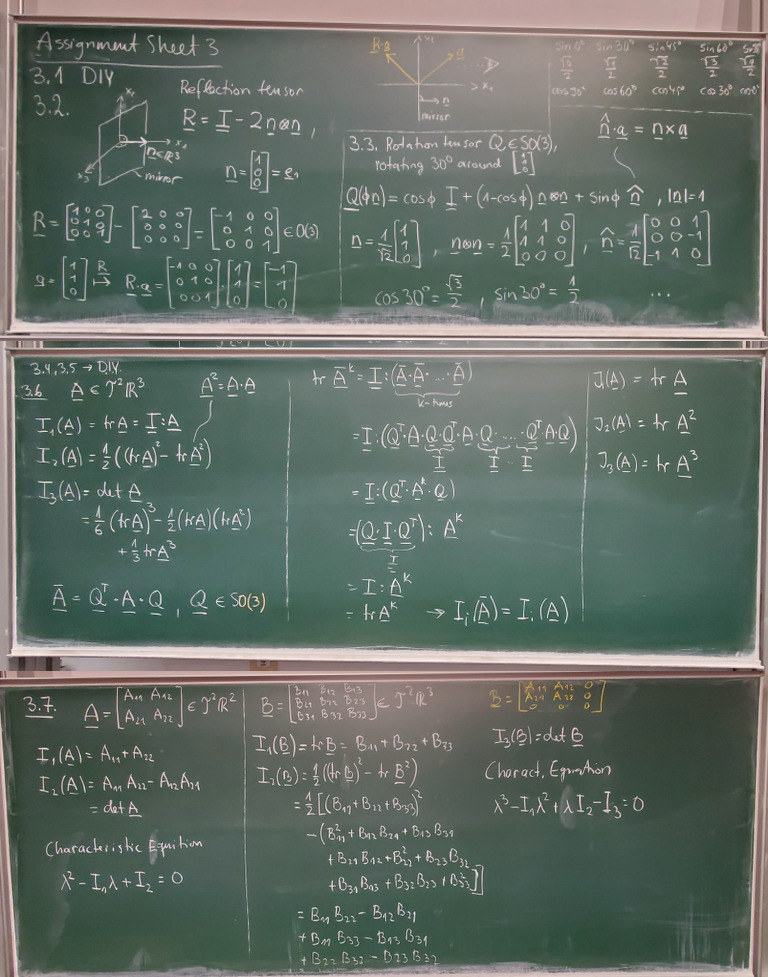 Assignment Sheet 3
3.1 DIY
3.2.
Reflection tensor
R = I - 2n⊗n,
n = [1 0 0] = e₁
x₂
x₁
x₃
n ∈ ℝ³
mirror
R = [1 0 0; 0 1 0; 0 0 1] - [2 0 0; 0 0 0; 0 0 0] = [-1 0 0; 0 1 0; 0 0 1] ∈ O(3)
a = [1 1 0] ↦ R·a = [-1 0 0; 0 1 0; 0 0 1]·[1 1 0] = [-1 1 0]
R
R·a
a
x₂
x₁
n
mirror
sin 0° sin 30° sin 45° sin 60°
√0/2 √1/2 √2/2 √3/2 √4/2
cos 90° cos 60° cos 45° cos 30° cos 0°
3.3. Rotation tensor Q ∈ SO(3),
rotating 30° around [1 1 0]
n̂·a = n×a
Q(ϕn) = cosϕ I + (1-cosϕ) n⊗n + sinϕ n̂, |n|=1
n = 1/√2 [1 1 0], n⊗n = 1/2 [1 1 0; 1 1 0; 0 0 0], n̂ = 1/√2 [0 0 1; 0 0 -1; -1 1 0]
cos 30° = √3/2, sin 30° = 1/2 ...
3.4, 3.5 → DIY.
3.6 A ∈ T²ℝ³
A² = A·A
I₁(A) = trA = I:A
I₂(A) = 1/2((trA)² - trA²)
I₃(A) = det A
= 1/6 (trA)³ - 1/2 (trA)(trA²)
+ 1/3 trA³
Ā = Qᵀ·A·Q, Q ∈ SO(3)
tr Āᵏ = I:(Ā·Ā· ... ·Ā)
k-times
= I:(Qᵀ·A·Q·Qᵀ·A·Q· ... ·Qᵀ·A·Q)
I I I
= I:(Qᵀ·Aᵏ·Q)
= (Q·I·Qᵀ) : Aᵏ
I
= I : Aᵏ
= trAᵏ → Iᵢ(Ā) = Iᵢ(A)
J₁(A) = tr A
J₂(A) = tr A²
J₃(A) = tr A³
3.7. A = [A₁₁ A₁₂; A₂₁ A₂₂] ∈ T²ℝ²
I₁(A) = A₁₁+A₂₂
I₂(A) = A₁₁A₂₂ - A₁₂A₂₁
= det A
Characteristic Equation
λ² - I₁λ + I₂ = 0
B = [B₁₁ B₁₂ B₁₃; B₂₁ B₂₂ B₂₃; B₃₁ B₃₂ B₃₃] ∈ T²ℝ³
I₁(B) = trB = B₁₁+B₂₂+B₃₃
I₂(B) = 1/2((trB)² - trB²)
= 1/2[(B₁₁+B₂₂+B₃₃)²
-(B₁₁²+B₁₂B₂₁+B₁₃B₃₁
+B₂₁B₁₂+B₂₂²+B₂₃B₃₂
+B₃₁B₁₃+B₃₂B₂₃+B₃₃²)]
= B₁₁B₂₂ - B₁₂B₂₁
+B₁₁B₃₃ - B₁₃B₃₁
+B₂₂B₃₃ - B₂₃B₃₂
B = [A₁₁ A₁₂ 0; A₂₁ A₂₂ 0; 0 0 0]
I₃(B) = det B
Charact. Equation
λ³ - I₁λ² + λI₂ - I₃ = 0